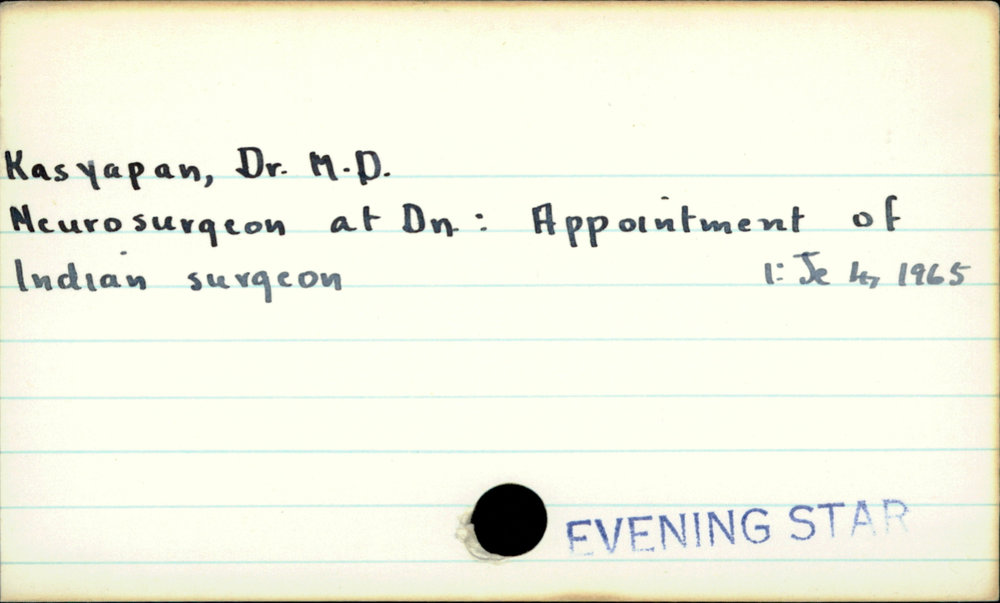 Kasyapan, Dr. M.D.
Neurosurgeon at Dn: Appointment of
Indian surgeon 1: Je 4, 1965
EVENING STAR